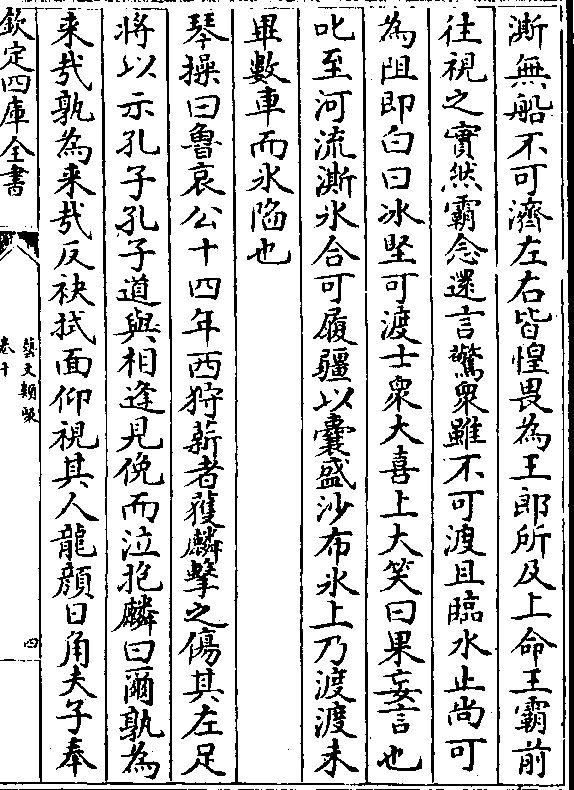 澌無船不可濟左右皆惶畏為王郎所及上命王霸前
往視之實然霸念還言驚衆雖不可渡且臨水止尚可
為阻即白曰冰堅可渡士衆大喜上大笑曰果妄言也
比至河流澌氷合可履疆以囊盛沙布氷上乃渡渡未
畢數車而氷陷也
琴操曰魯哀公十四年西狩薪者獲麟擊之傷其左足
將以示孔子孔子道與相逢見俛而泣抱麟曰爾孰為
来㢤孰為来㢤反袂拭面仰視其人龍顔日角夫子奉
欽定四庫全書
藝文類聚
卷十
四